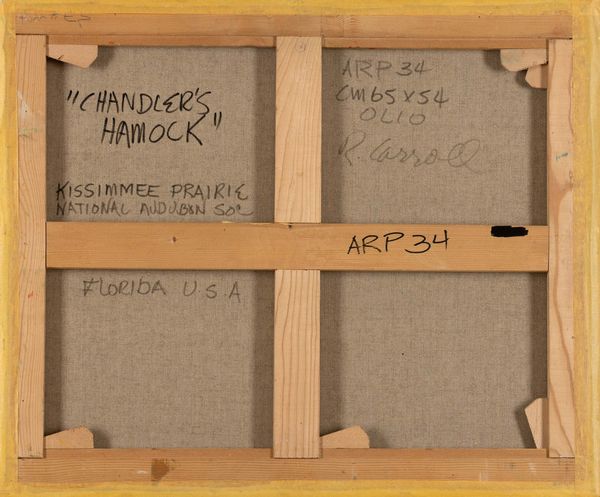 "CHANDLER'S
HAMOCK"
KISSIMMEE PRAIRIE
NATIONAL AUDUBON SOC
FLORIDA U.S.A
ARP 34
CM 65 x 54
OLIO
R. Carroll
ARP 34